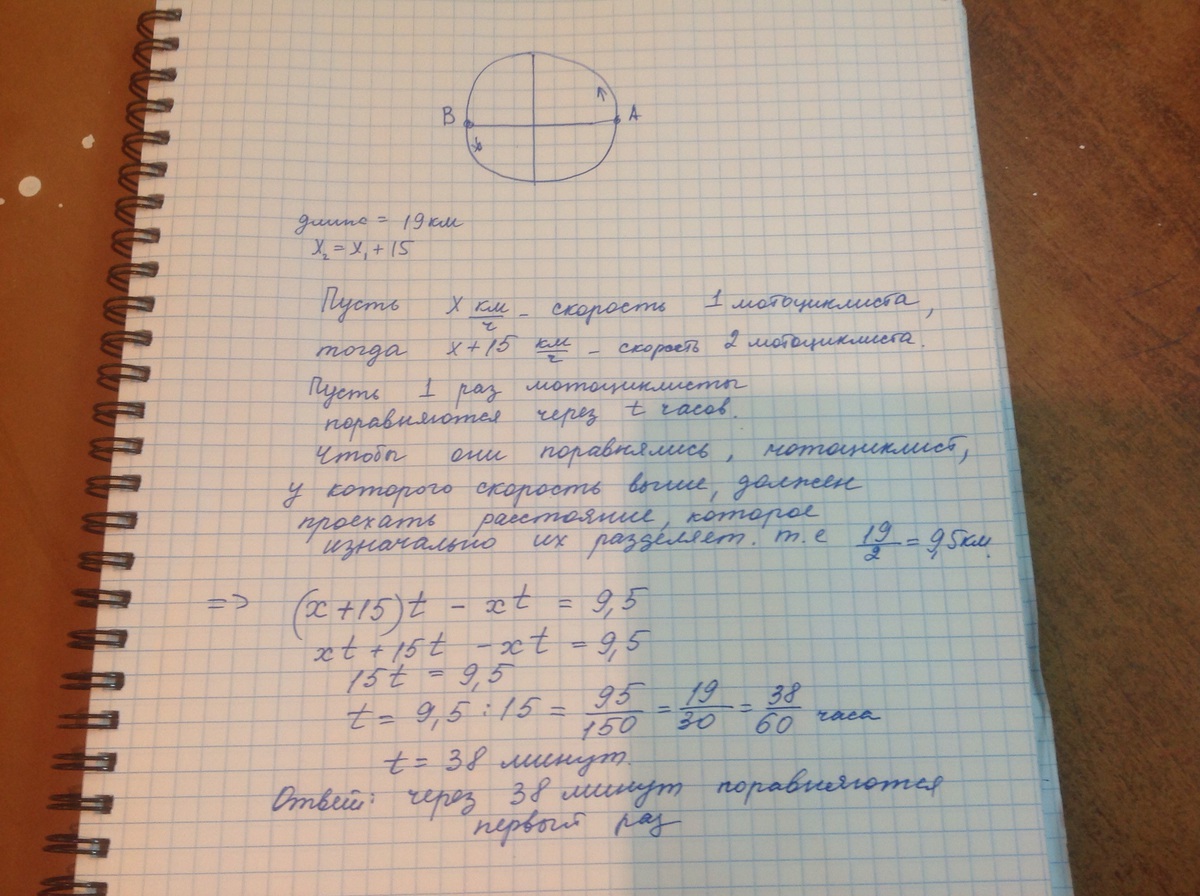 B A
длина = 19 км
x₂ = x₁ + 15
Пусть x км/ч - скорость 1 мотоциклиста,
тогда x + 15 км/ч - скорость 2 мотоциклиста.
Пусть 1 раз мотоциклисты
поравняются через t часов.
Чтобы они поравнялись, мотоциклист,
у которого скорость выше, должен
проехать расстояние, которое
изначально их разделяет. т.е 19/2 = 9,5 км.
=> (x + 15)t - xt = 9,5
xt + 15t - xt = 9,5
15t = 9,5
t = 9,5 : 15 = 95/150 = 19/30 = 38/60 часа
t = 38 минут.
Ответ: через 38 минут поравняются
первый раз